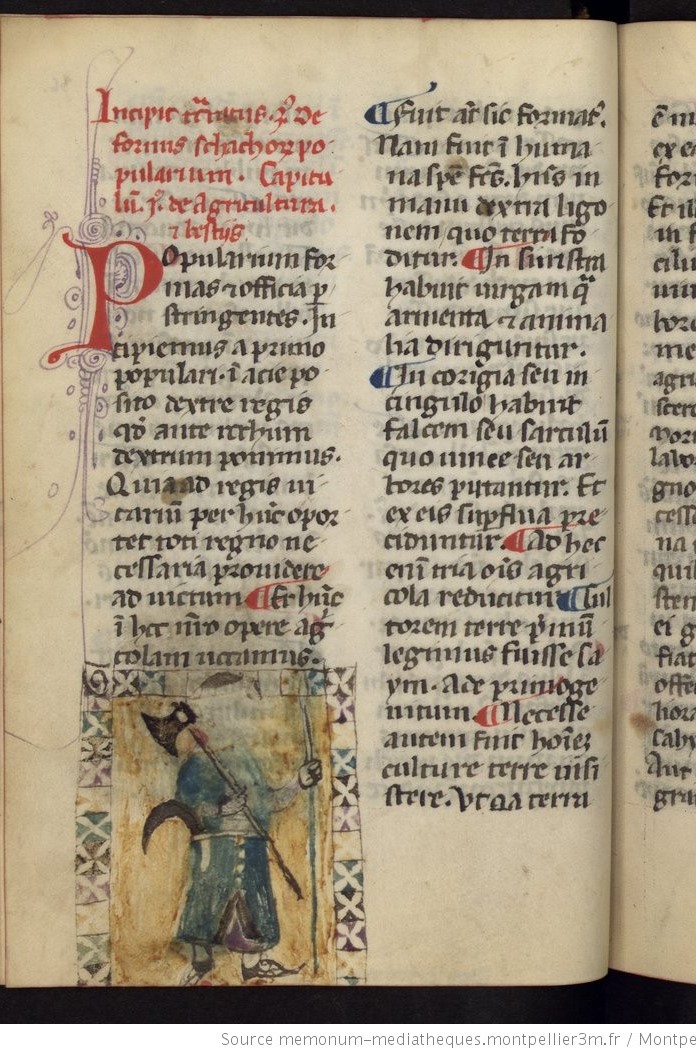 Incipit tractatus. 3. De
formis schachorum po
pularium. Capitu
lum. j. de agricultura.
et bestiis
Popularium for
mas et officia per
stringentes. In
cipiemus a primo
populari. in acie po
sito dextre regis
quod ante rochum
dextrum ponimus.
Quia ad regis vi
carium per hunc opor
tet toti regno ne
cessaria providere
ad victum ¶ Et hunc
in hoc nostro opere agri
colam vocamus.
¶ Fuit autem sic format
Nam fuit in huma
na specie habens in
manu dextra ligo
nem quo terra fo
ditur. ¶ In sinistra
habuit virgam qua
armenta et anima
lia diriguntur.
¶ In corigia seu in
cingulo habuit
falcem seu sarculum
quo vinee seu ar
bores putantur. Et
ex eis superflua pre
ciduntur. ¶ Ad hec
enim tria omnis agri
cola reducitur ¶ Cul
torem terre primum
legimus fuisse ca
ym. Ade primoge
nitum. ¶ Necesse
autem fuit homines
culture terre insi
stere. Ut qua terra
Source memonum-mediatheques.montpellier3m.fr / Montpe